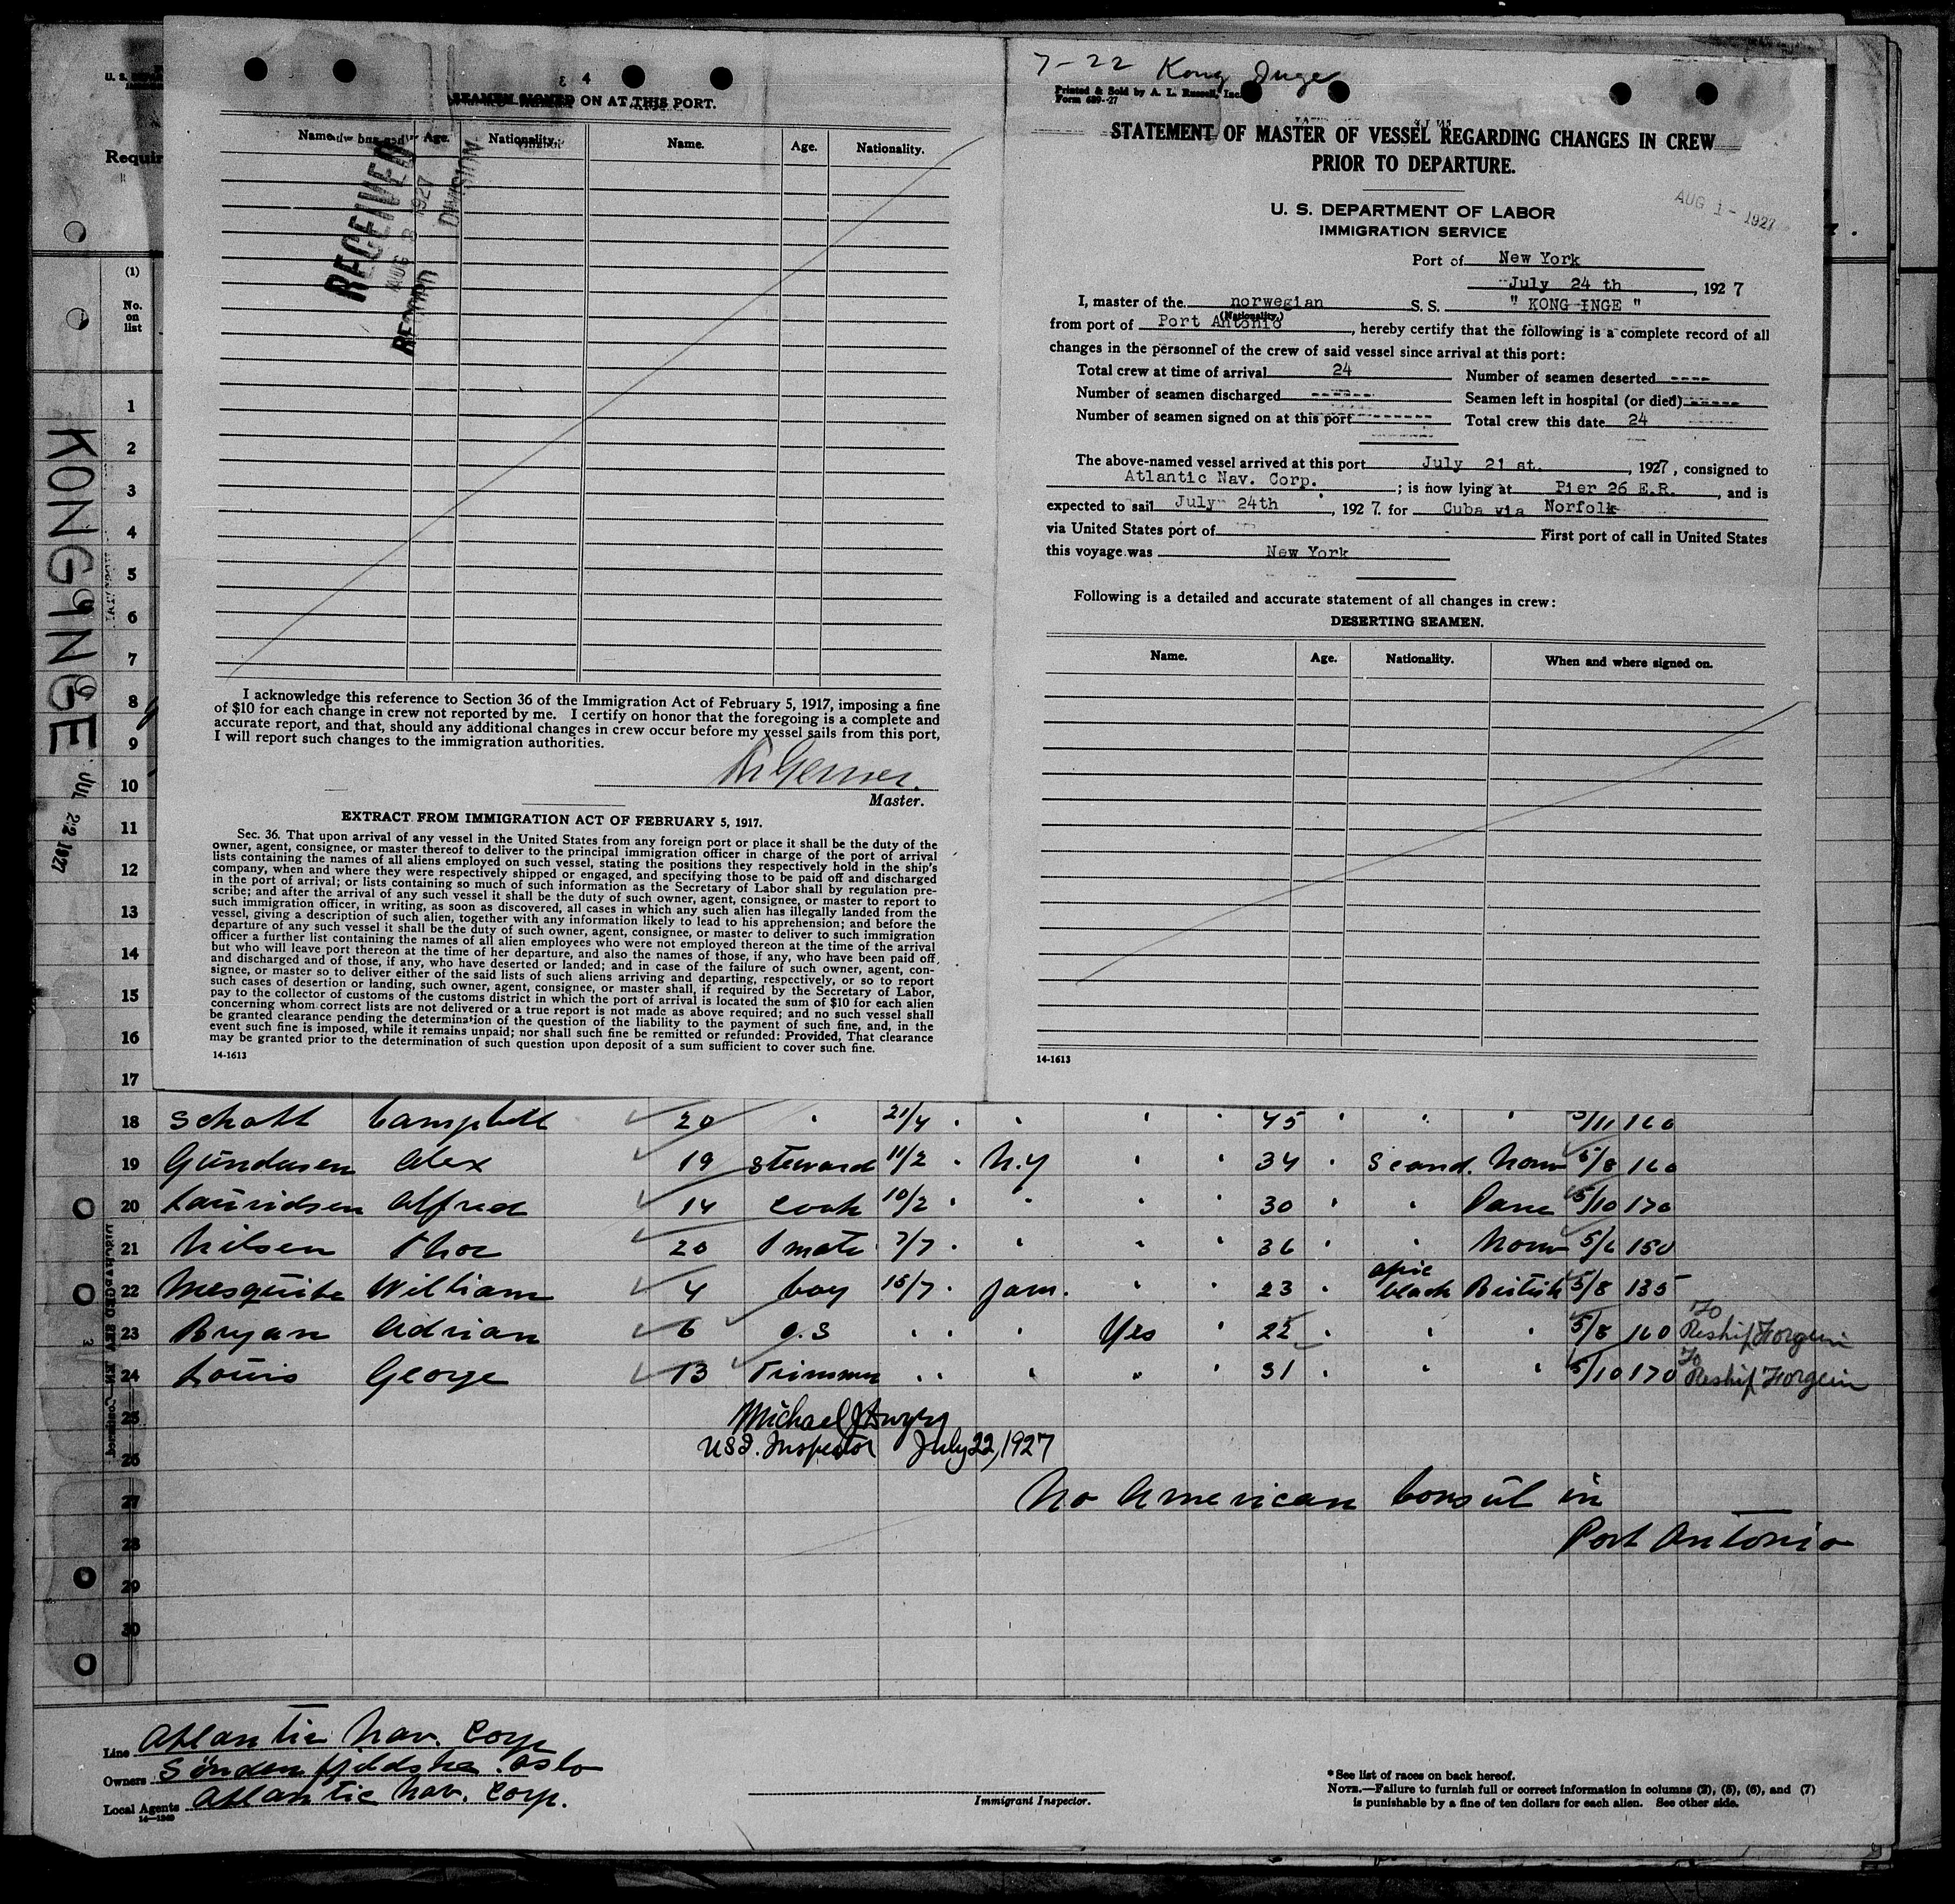 SEAMEN SIGNED ON AT THIS PORT.
Name. Age. Nationality. Name. Age. Nationality.
RECEIVED
AUG 3 1927
RECORD DIVISION
I acknowledge this reference to Section 36 of the Immigration Act of February 5, 1917, imposing a fine
of $10 for each change in crew not reported by me. I certify on honor that the foregoing is a complete and
accurate report, and that, should any additional changes in crew occur before my vessel sails from this port,
I will report such changes to the immigration authorities.
Master.
EXTRACT FROM IMMIGRATION ACT OF FEBRUARY 5, 1917.
Sec. 36. That upon arrival of any vessel in the United States from any foreign port or place it shall be the duty of the
owner, agent, consignee, or master thereof to deliver to the principal immigration officer in charge of the port of arrival
lists containing the names of all aliens employed on such vessel, stating the positions they respectively hold in the ship's
company, when and where they were respectively shipped or engaged, and specifying those to be paid off and discharged
in the port of arrival; or lists containing so much of such information as the Secretary of Labor shall by regulation pre-
scribe; and after the arrival of any such vessel it shall be the duty of such owner, agent, consignee, or master to report to
such immigration officer, in writing, as soon as discovered, all cases in which any such alien has illegally landed from the
vessel, giving a description of such alien, together with any information likely to lead to his apprehension; and before the
departure of any such vessel it shall be the duty of such owner, agent, consignee, or master to deliver to such immigration
officer a further list containing the names of all alien employees who were not employed thereon at the time of the arrival
but who will leave port thereon at the time of her departure, and also the names of those, if any, who have been paid off,
and discharged and of those, if any, who have deserted or landed; and in case of the failure of such owner, agent, con-
signee, or master so to deliver either of the said lists of such aliens arriving and departing, respectively, or so to report
such cases of desertion or landing, such owner, agent, consignee, or master shall, if required by the Secretary of Labor,
pay to the collector of customs of the customs district in which the port of arrival is located the sum of $10 for each alien
concerning whom correct lists are not delivered or a true report is not made as above required; and no such vessel shall
be granted clearance pending the determination of the question of the liability to the payment of such fine, and, in the
event such fine is imposed, while it remains unpaid; nor shall such fine be remitted or refunded: Provided, That clearance
may be granted prior to the determination of such question upon deposit of a sum sufficient to cover such fine.
14-1613
7-22 Kong Inge
Printed & Sold by A. L. Russell, Inc.
Form 689-27
STATEMENT OF MASTER OF VESSEL REGARDING CHANGES IN CREW
PRIOR TO DEPARTURE.
AUG 1 - 1927
U. S. DEPARTMENT OF LABOR
IMMIGRATION SERVICE
Port of New York
July 24 th, 1927
I, master of the norwegian S. S. " KONG INGE "
(Nationality.)
from port of Port Antonio, hereby certify that the following is a complete record of all
changes in the personnel of the crew of said vessel since arrival at this port:
Total crew at time of arrival 24 Number of seamen deserted ----
Number of seamen discharged ------ Seamen left in hospital (or died) -----
Number of seamen signed on at this port -------- Total crew this date 24
The above-named vessel arrived at this port July 21 st., 1927, consigned to
Atlantic Nav. Corp. ; is now lying at Pier 26 E.R., and is
expected to sail July 24th, 1927. for Cuba via Norfolk
via United States port of First port of call in United States
this voyage was New York
Following is a detailed and accurate statement of all changes in crew:
DESERTING SEAMEN.
Name. Age. Nationality. When and where signed on.
14-1613
Requir
(1)
No.
on
list
KONG INGE
JUL 22 1927
1
2
3
4
5
6
7
8
9
10
11
12
13
14
15
16
17
18 Schott Campbell 20 " 21/4 " " " " 45 " " " 5/11 160
19 Gundersen Alex 19 Steward 11/2 " N.Y " " 34 " Scand. Norw 5/8 160
20 Lauridsen Alfred 14 Cook 10/2 " " " " 30 " " Dane 5/10 170
21 Nilsen Thor 20 1 mate 7/7 " " " " 36 " " Norw 5/6 150
22 Mesquite William 4 boy 15/7 " Jam. " " 23 " afric black British 5/8 135
23 Bryan Adrian 6 O.S " " " Yes " 22 " " " 5/8 160 To Reship Forgein
24 Louis George 13 Trimmer " " " " " 31 " " " 5/10 170 To Reship Forgein
25 Michael J Dwyer
26 USI. Inspector July 22, 1927
27 No American Consul in
28 Port Antonio
29
30
Line Atlantic Nav. Corp
Owners Söndenfjeldske. Oslo
Local Agents Atlantic Nav. Corp.
14-1240
Immigrant Inspector.
* See list of races on back hereof.
NOTE.—Failure to furnish full or correct information in columns (3), (5), (6), and (7)
is punishable by a fine of ten dollars for each alien. See other side.